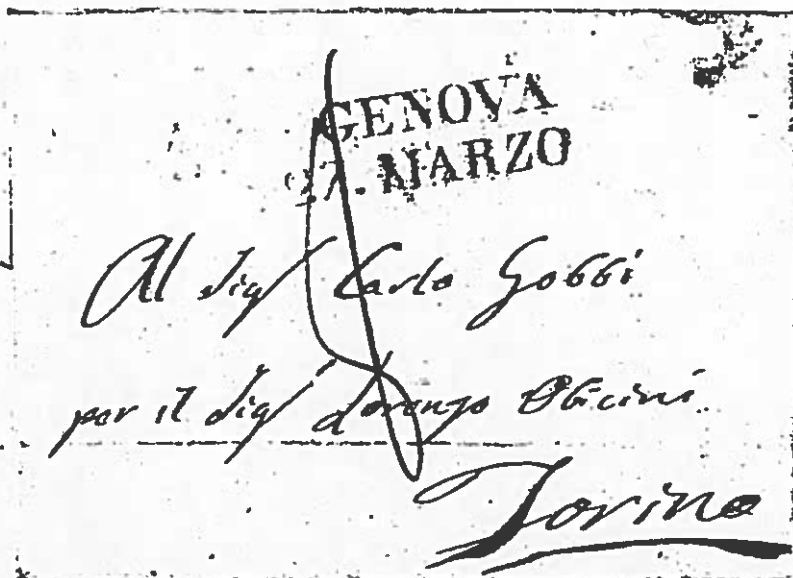 GENOVA
27. MARZO
Al Sig.r Carlo Gobbi
per il Sig.r Lorenzo Obicini
Torino